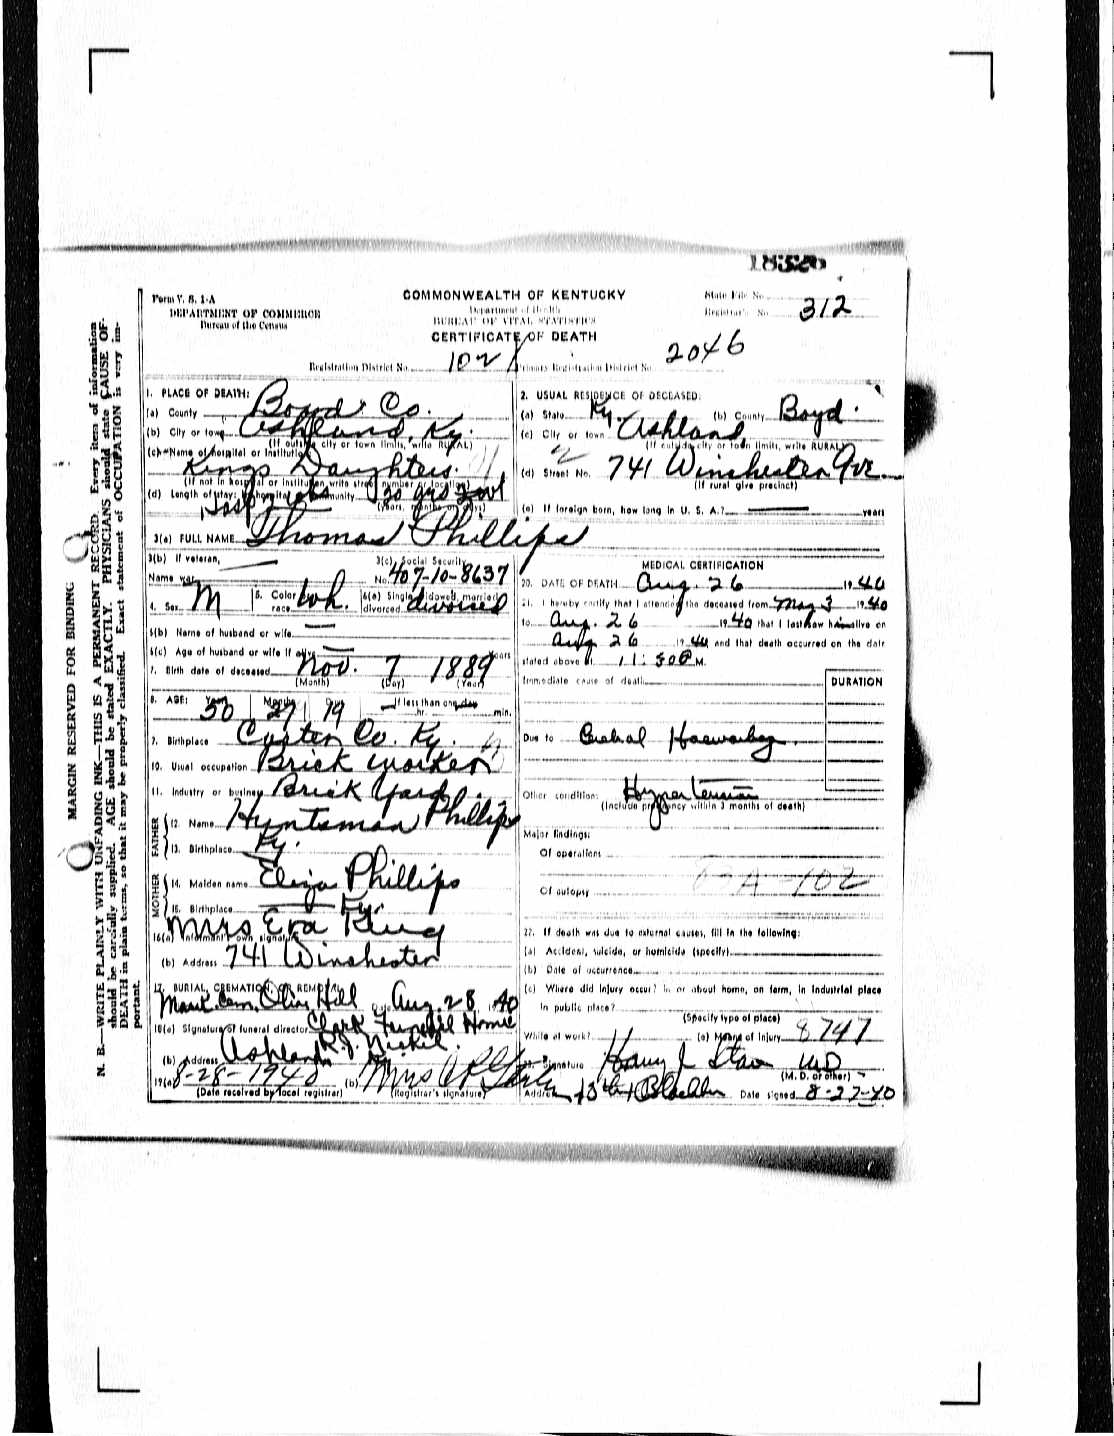 18326
Form V. S. 1-A
DEPARTMENT OF COMMERCE
Bureau of the Census
COMMONWEALTH OF KENTUCKY
Department of Health
BUREAU OF VITAL STATISTICS
CERTIFICATE OF DEATH
State File No.
Registrar's No. 312
Registration District No. 102 Primary Registration District No. 2046
MARGIN RESERVED FOR BINDING
N. B.—WRITE PLAINLY WITH UNFADING INK—THIS IS A PERMANENT RECORD. Every item of information
should be carefully supplied. AGE should be stated EXACTLY. PHYSICIANS should state CAUSE OF
DEATH in plain terms, so that it may be properly classified. Exact statement of OCCUPATION is very im-
portant.
1. PLACE OF DEATH:
(a) County Boyd Co.
(b) City or town Ashland Ky.
(If outside city or town limits, write RURAL)
(c) Name of hospital or institution
Kings Daughters.
(If not in hospital or institution write street number or location)
(d) Length of stay: In hospital community 20 yrs
(years, months or days)
2. USUAL RESIDENCE OF DECEASED:
(a) State Ky. (b) County Boyd.
(c) City or town Ashland,
(If outside city or town limits, write RURAL)
(d) Street No. 741 Winchester Ave
(If rural give precinct)
(e) If foreign born, how long in U. S. A.? years
3(a) FULL NAME Thomas Phillips
3(b) If veteran,
Name war
3(c) Social Security
No. 407-10-8637
4. Sex M 5. Color or race Wh. 6(a) Single, widowed, married, divorced divorced
6(b) Name of husband or wife
6(c) Age of husband or wife if alive years
7. Birth date of deceased Nov. 7 1889
(Month) (Day) (Year)
8. AGE: Years 50 Months Days 19 If less than one day
hr. min.
9. Birthplace Carter Co. Ky.
10. Usual occupation Brick worker
11. Industry or business Brick Yard
FATHER
12. Name Huntsman Phillips
13. Birthplace Ky.
MOTHER
14. Maiden name Eliza Phillips
15. Birthplace Ky.
16(a) Informant's own signature Mrs Eva King
(b) Address 741 Winchester
17. BURIAL, CREMATION, OR REMOVAL
Cem. Olive Hill Aug. 28 1940
18(a) Signature of funeral director Clark Funeral Home
(b) Address Ashland Ky
19(a) 8-28-1940 (b) Mrs
(Date received by local registrar) (Registrar's signature)
MEDICAL CERTIFICATION
20. DATE OF DEATH Aug. 26 1940
21. I hereby certify that I attended the deceased from May 3 1940
to Aug. 26 1940 that I last saw him alive on
Aug 26 1940 and that death occurred on the date
stated above at 11:50 P M.
Immediate cause of death DURATION
Due to Cerebral Hemorrhage
Other condition: Hypertension
(Include pregnancy within 3 months of death)
Major findings:
Of operations
Of autopsy 83A-102
22. If death was due to external causes, fill in the following:
(a) Accident, suicide, or homicide (specify)
(b) Date of occurrence
(c) Where did injury occur? In or about home, on farm, in industrial place
In public place?
(Specify type of place)
While at work? (e) Means of Injury 8747
23. Signature M D
(M. D. or other)
Address Date signed 8-27-40